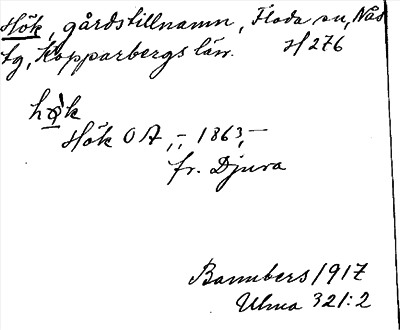 Hök, gårdstillnamn, Floda sn, Nås
tg, Kopparbergs län. H 276
hö̀k
Hök O A, -, - 1863, -
fr. Djura
Bannbers 1917
Ulma 321:2